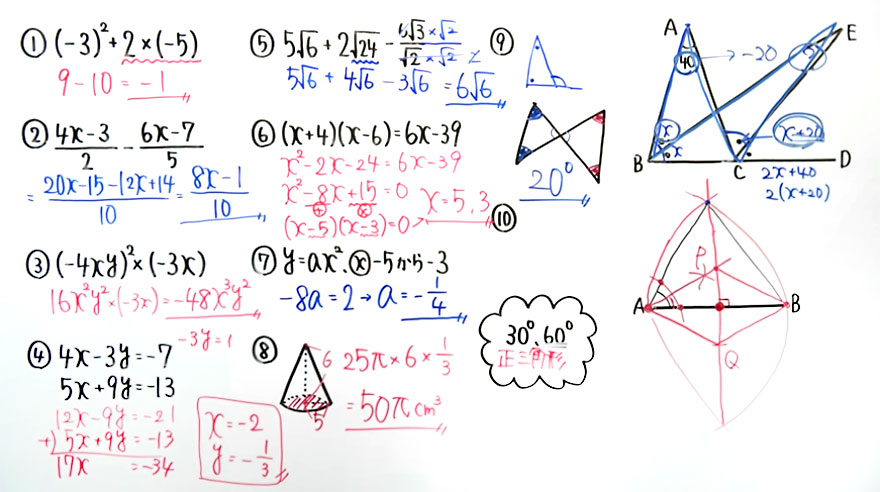 ① (-3)²+2×(-5)
9-10=-1
② 4x-3/2 - 6x-7/5
= 20x-15-12x+14/10 = 8x-1/10
③ (-4xy)²×(-3x)
16x²y²×(-3x)=-48x³y²
④ 4x-3y=-7
-3y=1
5x+9y=-13
12x-9y=-21
+) 5x+9y=-13
17x =-34
x=-2
y=-1/3
⑤ 5√6+2√24-6√3×√2/√2×√2
5√6+4√6-3√6=6√6
⑥ (x+4)(x-6)=6x-39
x²-2x-24=6x-39
x²-8x+15=0
+ ×
(x-5)(x-3)=0 x=5,3
⑦ y=ax²、x-5から-3
-8a=2→a=-1/4
⑧ 6 25π×6×1/3
5 =50πcm³
⑨
20°
A E
40 →-20
x x+20
B x C D
2x+40
2(x+20)
⑩
30°、60°
正三角形
P
A B
Q